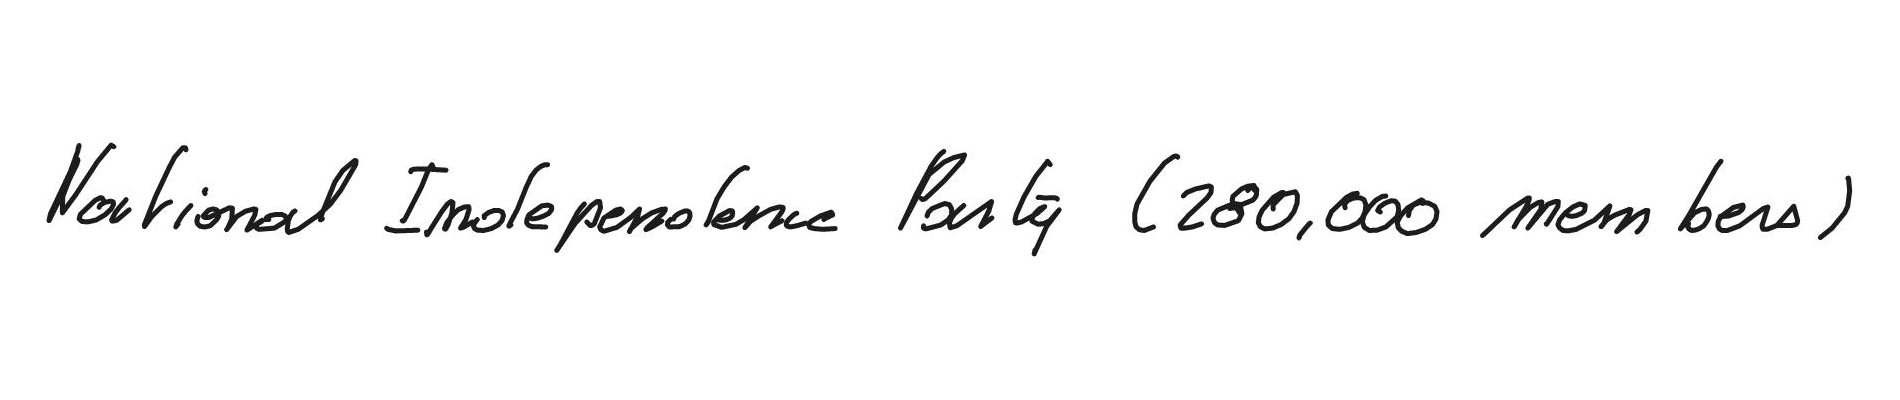 National Independence Party (280,000 members)